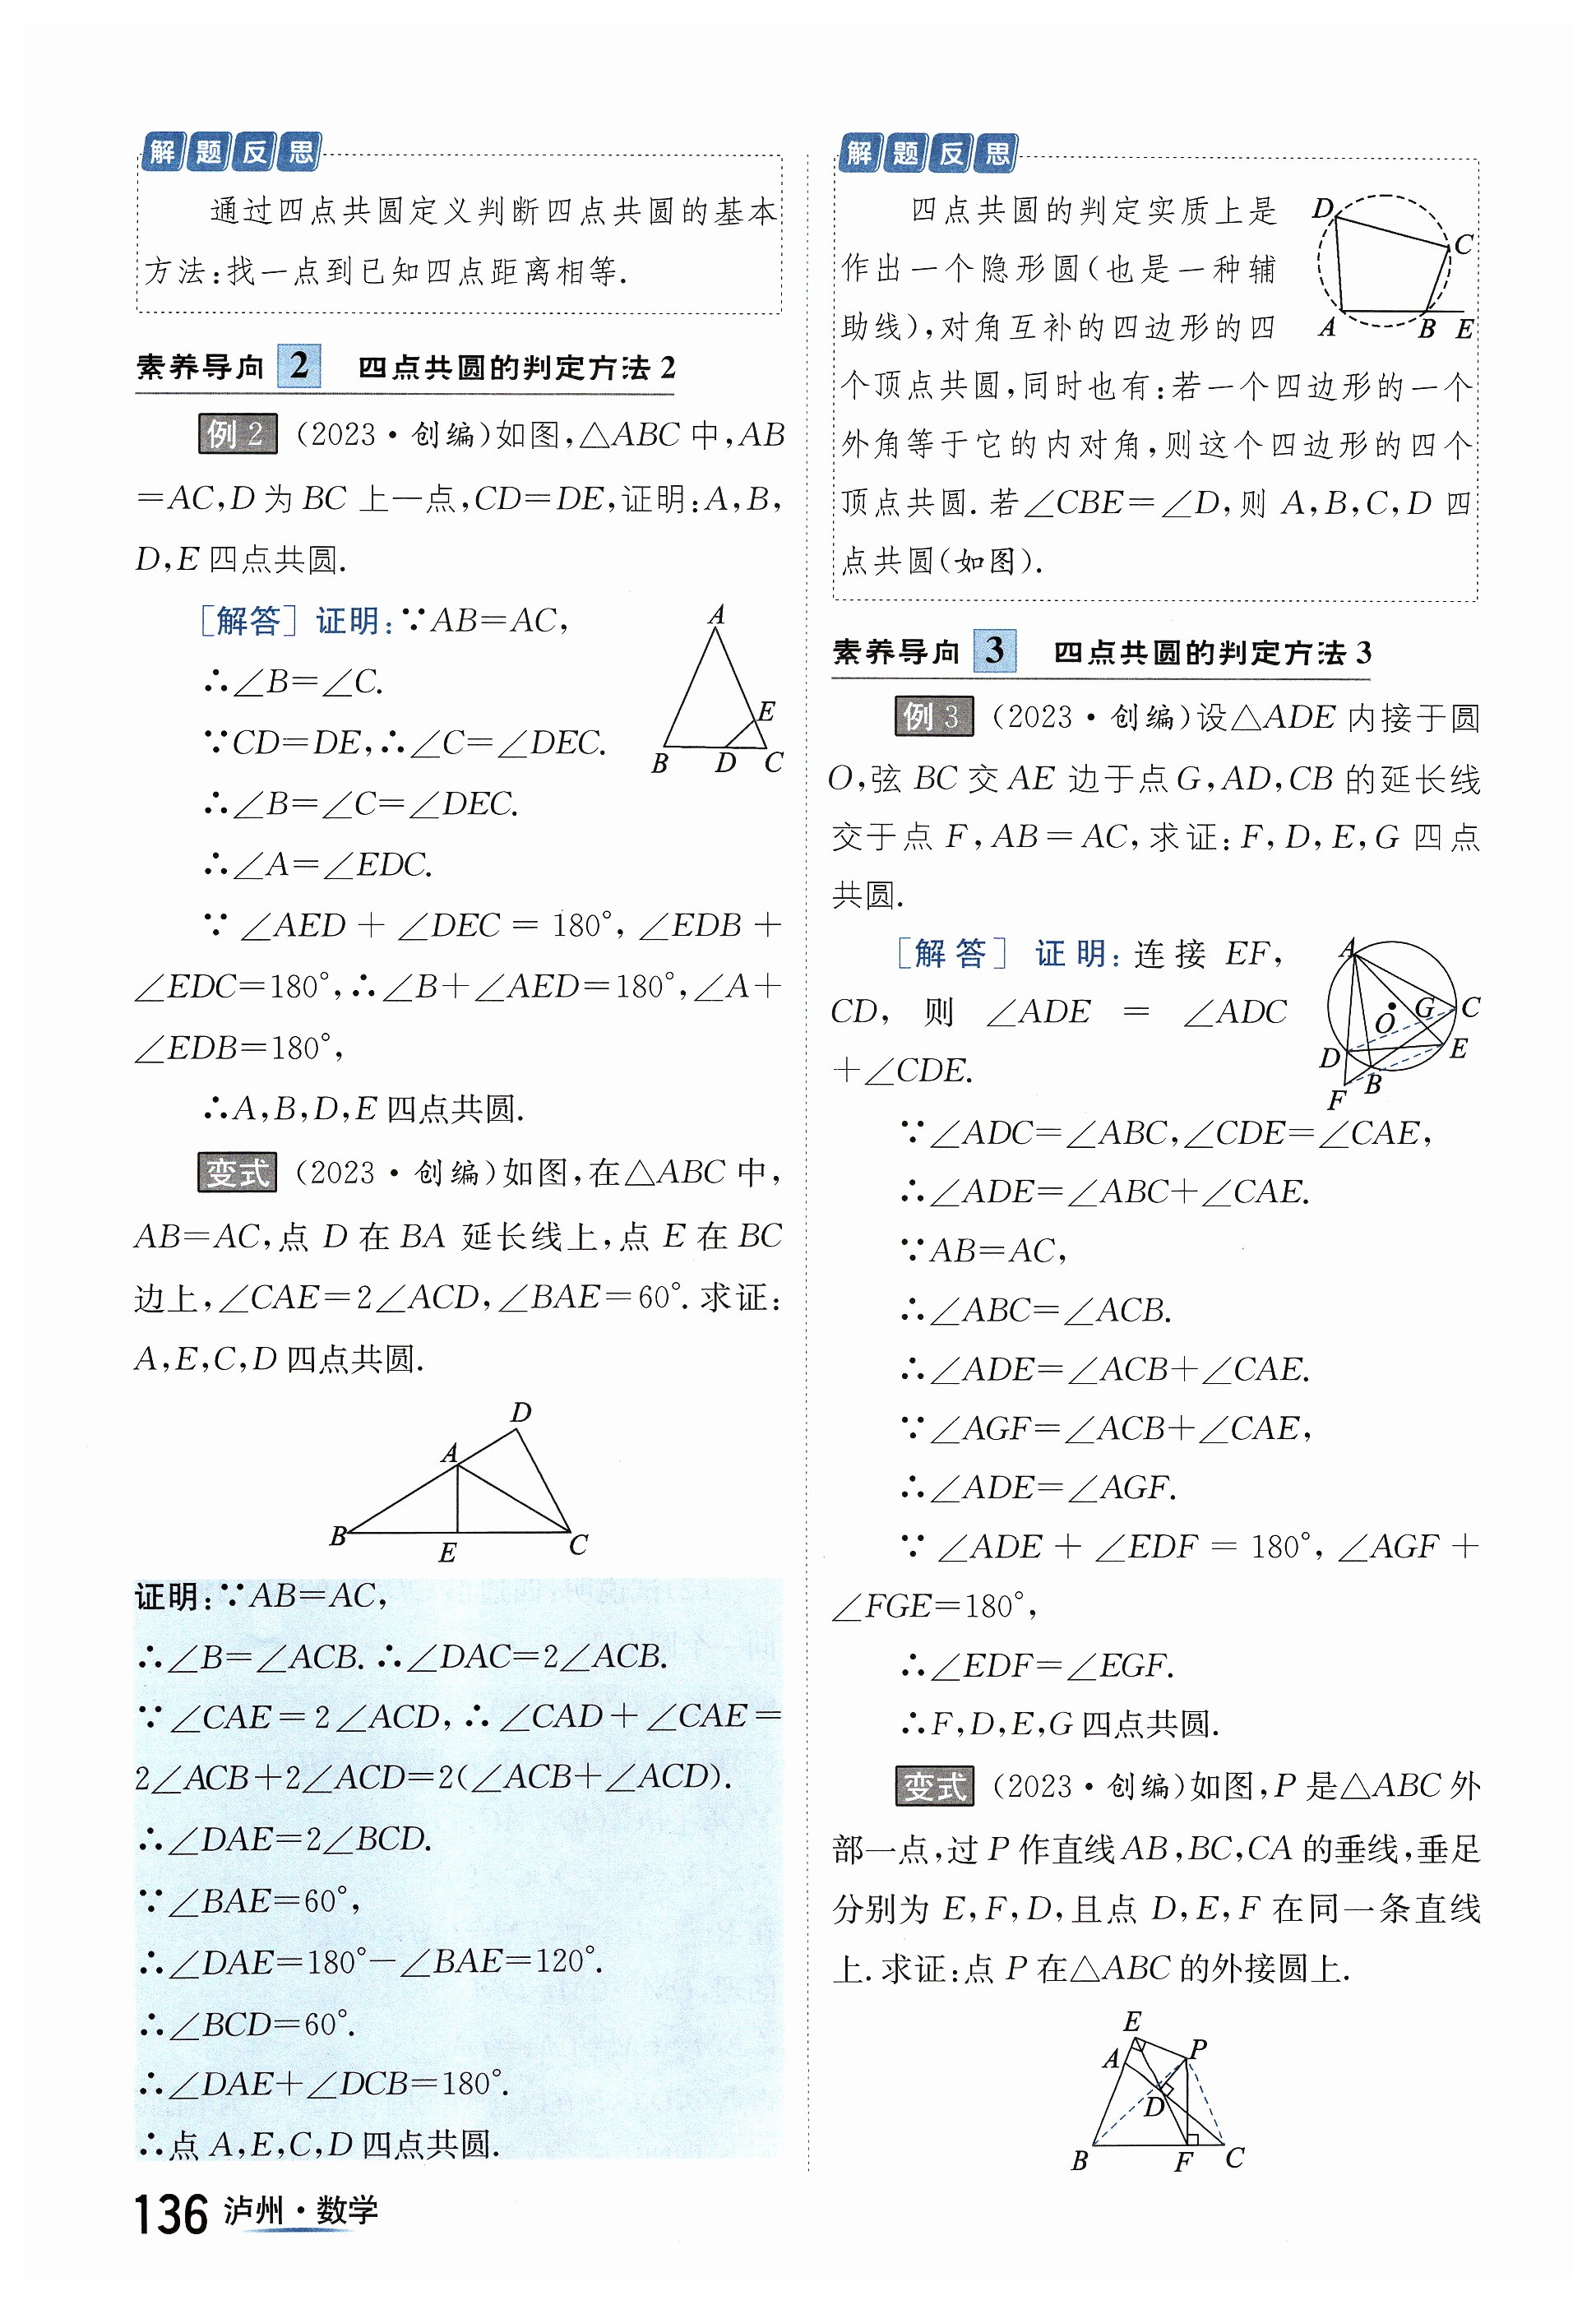 解题反思
通过四点共圆定义判断四点共圆的基本
方法:找一点到已知四点距离相等.
素养导向 2 四点共圆的判定方法2
例2 (2023·创编)如图,△ABC中,AB
=AC,D为BC上一点,CD=DE,证明:A,B,
D,E四点共圆.
[解答] 证明:∵AB=AC,
∴∠B=∠C.
∵CD=DE,∴∠C=∠DEC.
∴∠B=∠C=∠DEC.
∴∠A=∠EDC.
∵∠AED+∠DEC=180°,∠EDB+
∠EDC=180°,∴∠B+∠AED=180°,∠A+
∠EDB=180°,
∴A,B,D,E四点共圆.
A
E
B D C
变式 (2023·创编)如图,在△ABC中,
AB=AC,点D在BA延长线上,点E在BC
边上,∠CAE=2∠ACD,∠BAE=60°.求证:
A,E,C,D四点共圆.
D
A
B E C
证明:∵AB=AC,
∴∠B=∠ACB.∴∠DAC=2∠ACB.
∵∠CAE=2∠ACD,∴∠CAD+∠CAE=
2∠ACB+2∠ACD=2(∠ACB+∠ACD).
∴∠DAE=2∠BCD.
∵∠BAE=60°,
∴∠DAE=180°-∠BAE=120°.
∴∠BCD=60°.
∴∠DAE+∠DCB=180°.
∴点A,E,C,D四点共圆.
136 泸州·数学
解题反思
四点共圆的判定实质上是
作出一个隐形圆(也是一种辅
助线),对角互补的四边形的四
个顶点共圆,同时也有:若一个四边形的一个
外角等于它的内对角,则这个四边形的四个
顶点共圆.若∠CBE=∠D,则A,B,C,D四
点共圆(如图).
D
C
A B E
素养导向 3 四点共圆的判定方法3
例3 (2023·创编)设△ADE内接于圆
O,弦BC交AE边于点G,AD,CB的延长线
交于点F,AB=AC,求证:F,D,E,G四点
共圆.
[解答] 证明:连接EF,
CD,则∠ADE=∠ADC
+∠CDE.
∵∠ADC=∠ABC,∠CDE=∠CAE,
∴∠ADE=∠ABC+∠CAE.
∵AB=AC,
∴∠ABC=∠ACB.
∴∠ADE=∠ACB+∠CAE.
∵∠AGF=∠ACB+∠CAE,
∴∠ADE=∠AGF.
∵∠ADE+∠EDF=180°,∠AGF+
∠FGE=180°,
∴∠EDF=∠EGF.
∴F,D,E,G四点共圆.
A
O G C
D E
B
F
变式 (2023·创编)如图,P是△ABC外
部一点,过P作直线AB,BC,CA的垂线,垂足
分别为E,F,D,且点D,E,F在同一条直线
上.求证:点P在△ABC的外接圆上.
E
A P
D
B F C